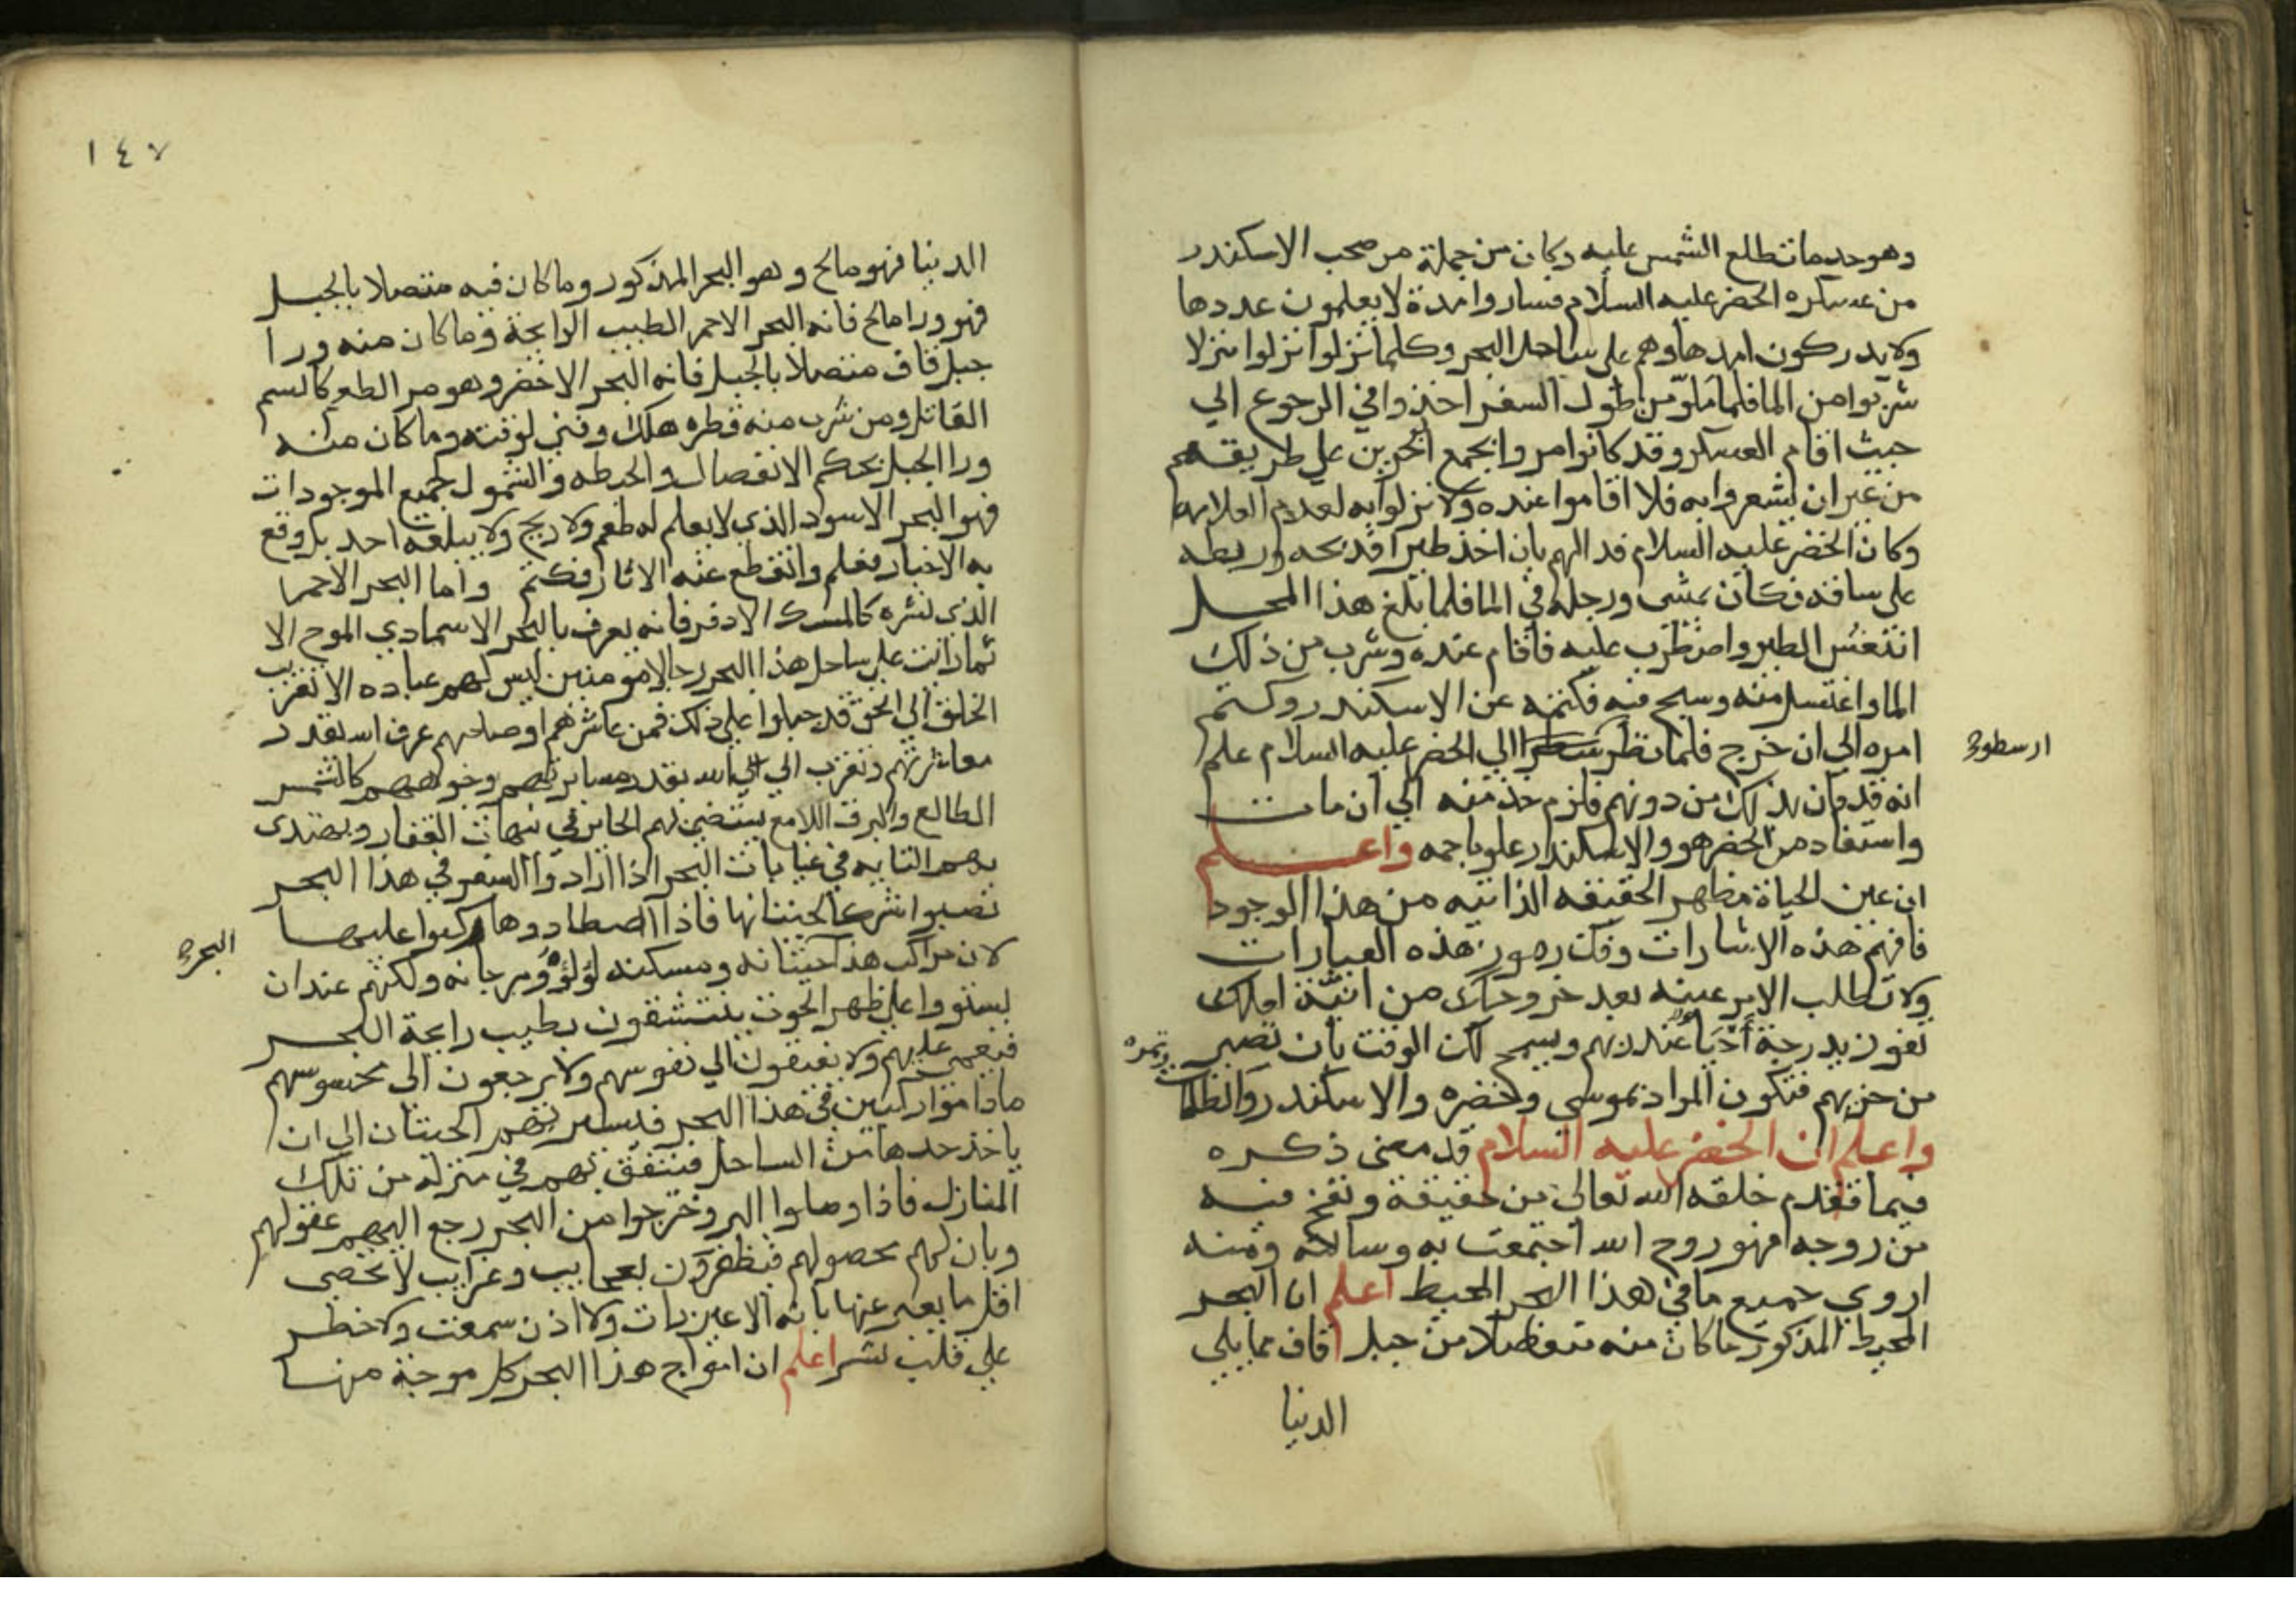 وهو حد ما تطلع الشمس عليه وكان من جملة من صحب الاسكندر
من عسكره الخضر عليه السلام فساروا مدة لا يعلمون عددها
ولا يدركون امدها وهم على ساحل البحر وكلما نزلوا نزلوا منزلا
شربوا من الما فلما ملوا من طول السفر اخذوا في الرجوع الي
حيث اقام العسكر وقد كانوا مروا بمجمع البحرين علي طريقهم
من غير ان يشعروا به فلا اقاموا عنده ولا نزلوا به لعدم العلامه
وكان الخضر عليه السلام قد الهم بان اخذ طيرا فذبحه وربطه
على ساقه فكان يمشى ورجله في الما فلما بلغ هذا المحل
انتعش الطير واضطرب عليه فاقام عنده وشرب من ذلك
الما واغتسل منه وسبح فيه فكتمه عن الاسكندر وكتم
امره الي ان خرج فلما نظر الي الخضر عليه السلام علم
ارسطو
انه قد فاز بذلك من دونهم فلزم خدمته الي ان مات
واستفاد من الخضر هو والاسكندر علوما جمه واعلم
ان عين الحياة مظهر الحقيقه الذاتيه من هذا الوجود
فافهم هذه الاشارات وفك رموز هذه العبارات
ولا تطلب الامر عينه بعد خروجك من انيتك
تفوز بدرجة أحيا عند ربهم ويسمح لك الوقت بان تصير
من حزبهم فتكون المراد بموسى وخضره والاسكندر والظلمات
ونهره
واعلم ان الخضر عليه السلام قد مضى ذكره
فيما تقدم خلقه الله تعالى من حقيقة ونفخ فيه
من روحه فهو روح الله اجتمعت به وسالته ومنه
اروي جميع ما في هذا البحر المحيط اعلم ان البحر
المحيط المذكور ما كان منه منفصلا من جبل قاف مما يلي
الدنيا
١٤٧
الدنيا فهو مالح وهو البحر المذكور وما كان فيه متصلا بالجبل
فهو ورا مالح فانه البحر الاحمر الطيب الرايحة وما كان منه ورا
جبل قاف متصلا بالجبل فانه البحر الاخضر وهو مر الطعم كالسم
القاتل ومن شرب منه قطره هلك وفني لوقته وما كان منه
ورا الجبل بحكم الانفصال والحيطه والشمول لجميع الموجودات
فهو البحر الاسود الذي لا يعلم له طعم ولا ريح ولا يبلغه احد بل وقع
به الاخبار فعلم وانقطع عنه الاثار فكتم واما البحر الاحمر
الذي نشره كالمسك الادفر فانه يعرف بالبحر الاسمى ذي الموج الا
نما رايت على ساحل هذا البحر رجالا مومنين ليس لهم عباده الا تقريب
الخلق الي الحق قد جبلوا علي ذلك فمن عاشرهم او صاحبهم عرف الله بقدر
معاشرتهم وتقرب الي الله بقدر مسايرتهم وجوههم كالشمس
الطالع والبرق اللامع يستضي بهم الحاير في تيهات القفار ويهتدى
بهم التايه في غيابات البحر اذا ارادوا السفر في هذا البحر
نصبوا شركا لحيتانها فاذا اصطادوها ركبوا عليها
لان مراكب هذا حيتانه ومسكنه لؤلؤه ومرجانه ولكنهم عند ان
البحر
يستووا علي ظهر الحوت ينتشقون بطيب رايحة البحر
فيغمى عليهم ولا يفيقون الي نفوسهم ولا يرجعون الى محسوسهم
ماداموا راكبين في هذا البحر فيسير بهم الحيتان الي ان
ياخذ حدها من الساحل فتقذف بهم في منزلة من تلك
المنازل فاذا وصلوا البر وخرجوا من البحر رجع اليهم عقولهم
وبان لهم محصولهم فيظفرون بعجايب وغرايب لا تحصى
اقل ما يعبر عنها بانه لا عين رات ولا اذن سمعت ولا خطر
علي قلب بشر اعلم ان امواج هذا البحر كل موجة منها